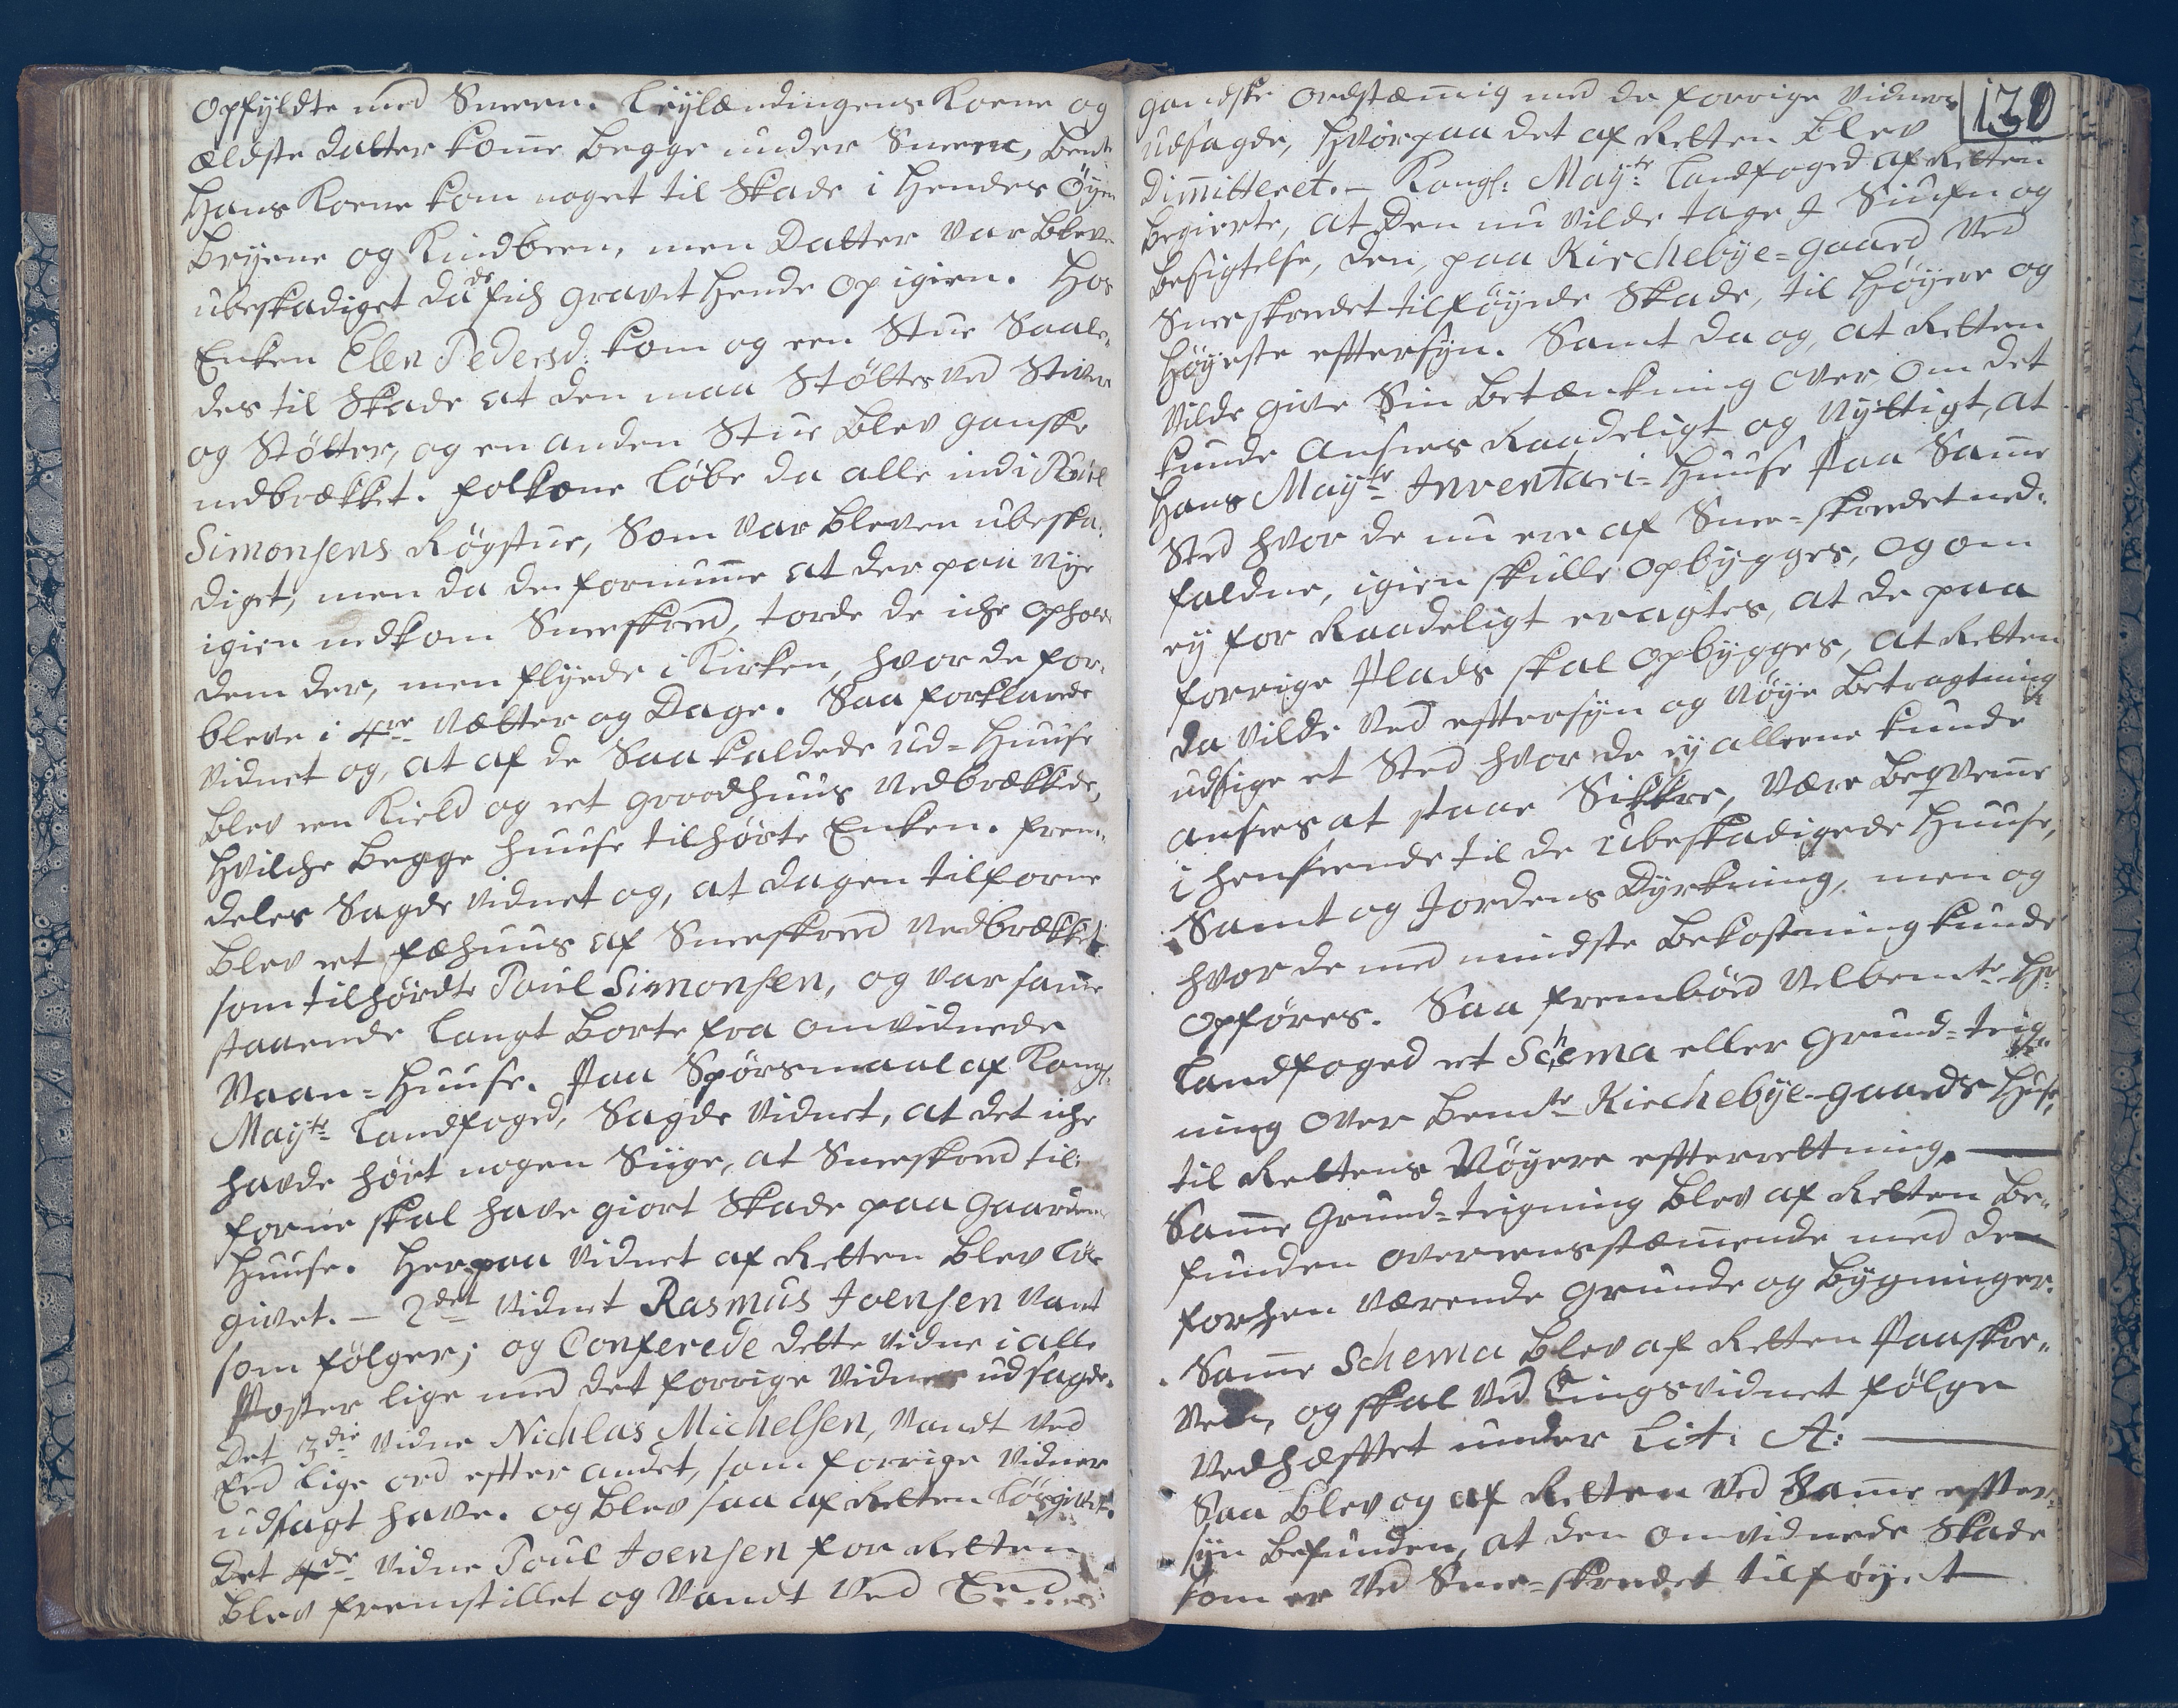 Opfyldte med Sneen. Leylændingens Kone og
ældste Datter komme begge under Sneene, bemte
Hans Kone kom noget til Skade i Hendes Øyen
Bryene og Kindbeen, men Datter var bleven
ubeskadiget da de fick gravet Hende op igien. Hos
Enken Elen Pedersd: kom og een Stue Saale-
des til Skade at den maa Støttes ved Stiver
og Støtter, og en anden Stue blev ganske
nedbrækket. folkene løbe da alle ind i Poul
Simonsens Røgstue, Som var bleven ubeska-
diget, men da de fornumme at der paa nye
igien nedkom Sneeskred, torde de iche opholde
dem der, men flyede i Kirken, hvor de for-
bleve i 4re Nætter og Dage. Saa forklarede
Vidnet og, at af de Saa kaldede ud-Huuse
blev een Kield og et groodhuus Nedbrækkede,
hvilche begge Huuse tilhørte Enken. frem-
deles Sagde Vidnet og, at dagen tilforne
blev et fæhuus af Sneeskred Nedbrækket
som tilhørdte Poul Simonsen, og var samme
staaende langt borte fra omvidnede
Vaan-Huuse. Paa Spørsmaal af Kongl:
Mayts Landfoged, Sagde Vidnet, at det iche
havde hørt nogen Siige, at Sneeskred til-
forne skal have giort Skade paa Gaardens
Huuse. Herpaa Vidnet af Retten blev løs
givet. - 2det Vidnet Rasmus Joensen Vant
som følger; og Conferede dette Vidne i alle
Poster lige med det forrige Vidnes udsagde.
Det 3die Vidne Nichlas Michelsen, Vandt Ved
Eed lige ord efter andet, som forrige Vidner
udsagt have. og blev saa af Retten løsgivet.
Det 4de Vidne Poul Joensen for Retten
blev fremstillet og Vandt Ved Eed
130
gandske ordstæmmig med de forrige Vidners
udsagde, hvorpaa det af Retten blev
Dimitteret. - Kongl: Mayts Landfoged af Retten
begierte, at Den nu vilde tage I Siufn og
besigtelse, den, paa Kirchebye-gaard Ved
Sneeskredet tilføyede Skade, til Høyere og
Høyeste eftersyn. Samt da og, at Retten
Vilde give Sin Betænkning over, om det
kunde Ansees Raadeligt og Nyttigt, at
Hans Mayts Inventari-Huuse paa Samme
Sted hvor de nu ere af Snee-skredet ned-
faldne, igien skulle opbygges, og om
ey for Raadeligt eragtes, at de paa
forrige Plads skal opbygges, at Retten
da Vilde Ved eftersyn og Nøye Betragtning
udsige et Sted hvor de ey alleene kunde
ansees at staae Sikkre, Være Beqvemme
i henseende til de Ubeskadigede Huuse,
Samt og Jordens Dyrkning, men og
hvor de med mindste Bekostning kunde
opføres. Saa frembød Velbemte Hr
Landfoged et Schema eller Grund-teig-
ning over bemte Kirchebye-gaards Huse,
til Rettens Nøyere efterretning.
Samme Grund-teigning blev af Retten be-
funden overeensstæmmende med de
forhen værende Grunde og bygninger.
Samme Schema blev af Retten Paaskre-
ven, og skal Ved Tingsvidnet følge
Vedhæftet under Lit: A:
Saa blev og af Retten Ved Samme efter-
siyn befunden, at den omvidnede Skade
som er Ved Snee-skredet tilføyet